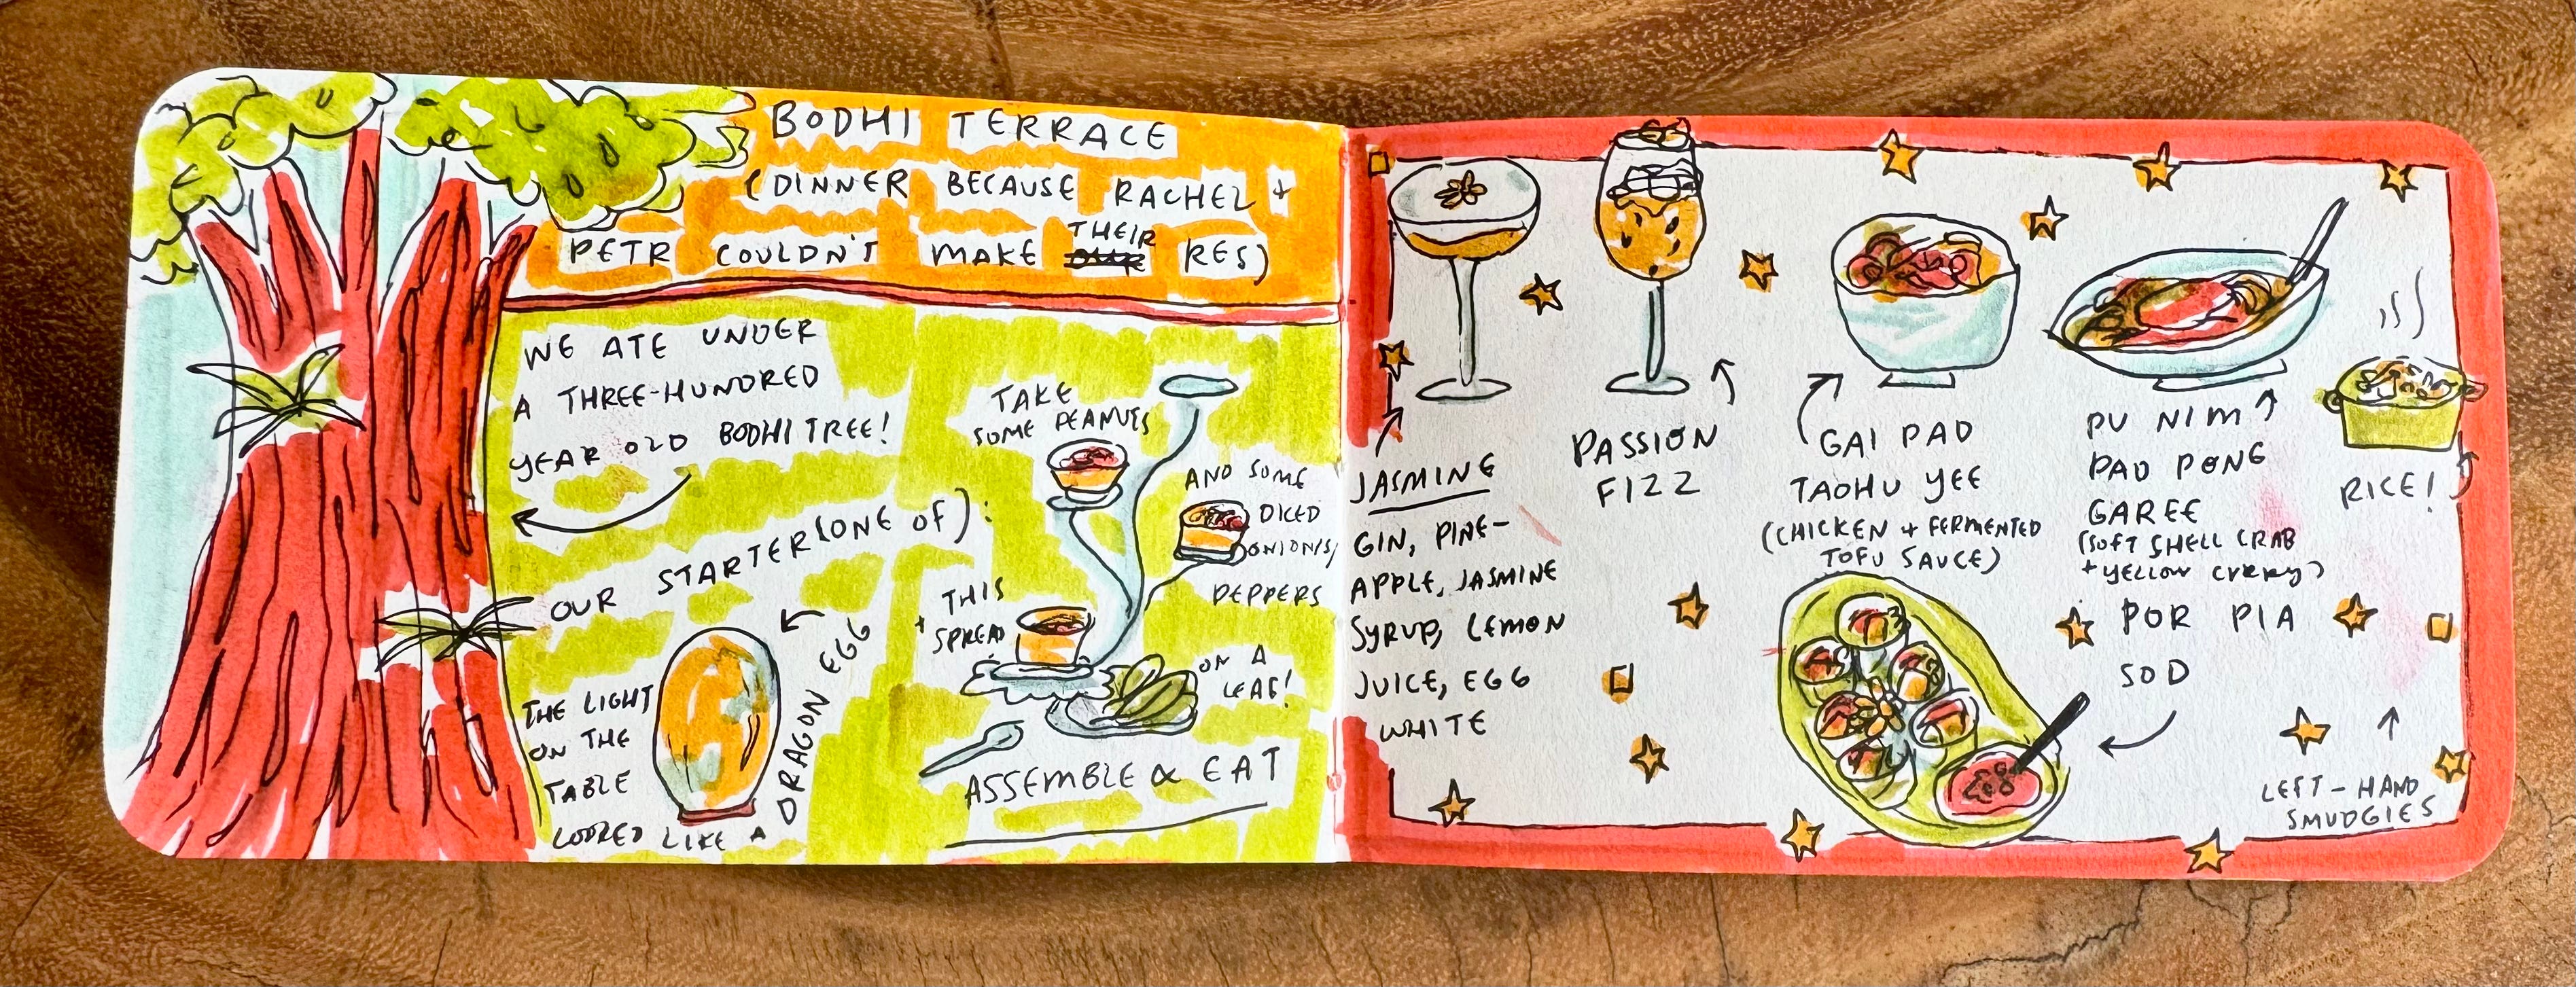 BODHI TERRACE
(DINNER BECAUSE RACHEL +
PETR COULDN'T MAKE THEIR RES)
WE ATE UNDER
A THREE-HUNDRED
YEAR OLD BODHI TREE!
OUR STARTER (ONE OF):
THE LIGHT
ON THE
TABLE
LOOKED LIKE A
DRAGON EGG
TAKE
SOME PEANUTS
AND SOME
DICED
ONIONS/
PEPPERS
+ THIS
SPREAD
ON A
LEAF!
ASSEMBLE & EAT
JASMINE
GIN, PINE-
APPLE, JASMINE
SYRUP, LEMON
JUICE, EGG
WHITE
PASSION
FIZZ
GAI PAD
TAOHU YEE
(CHICKEN + FERMENTED
TOFU SAUCE)
PU NIM
PAD PONG
GAREE
(SOFT SHELL CRAB
+ YELLOW CURRY)
RICE!
POR PIA
SOD
LEFT-HAND
SMUDGIES